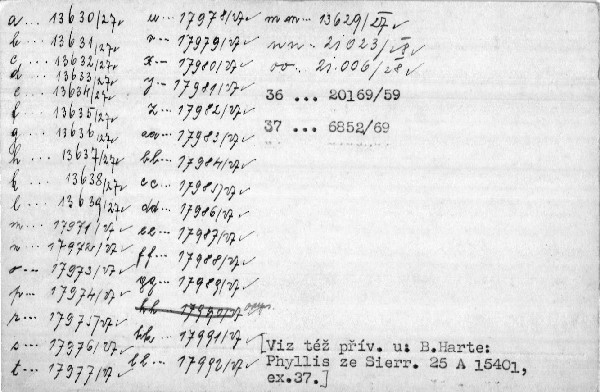 a ... 13630/27
b ... 13631/27
c ... 13632/27
d ... 13633/27
e ... 13634/27
f ... 13635/27
g ... 13636/27
h ... 13637/27
k ... 13638/27
l ... 13639/27
m ... 17971/27
n ... 17972/27
o ... 17973/27
p ... 17974/27
r ... 17975/27
s ... 17976/27
t ... 17977/27
u ... 17978/27
v ... 17979/27
x ... 17980/27
y ... 17981/27
z ... 17982/27
aa ... 17983/27
bb ... 17984/27
cc ... 17985/27
dd ... 17986/27
ee ... 17987/27
ff ... 17988/27
gg ... 17989/27
hh ... 17990/27
kk ... 17991/27
ll ... 17992/27
mm ... 13629/27
nn ... 21.023/28
oo ... 21.006/28
36 ... 20169/59
37 ... 6852/69
[Viz též přív. u: B.Harte:
Phyllis ze Sierr. 25 A 15401,
ex.37.]